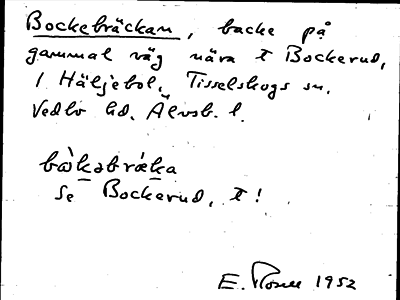 Bockebräckan, backe på
gammal väg nära t Bockerud,
1 Häljebol, Tisselskogs sn.
Vedbo hd. Älvsb. l.
bòkəbrǽka
Se Bockerud, t!
E. 1952